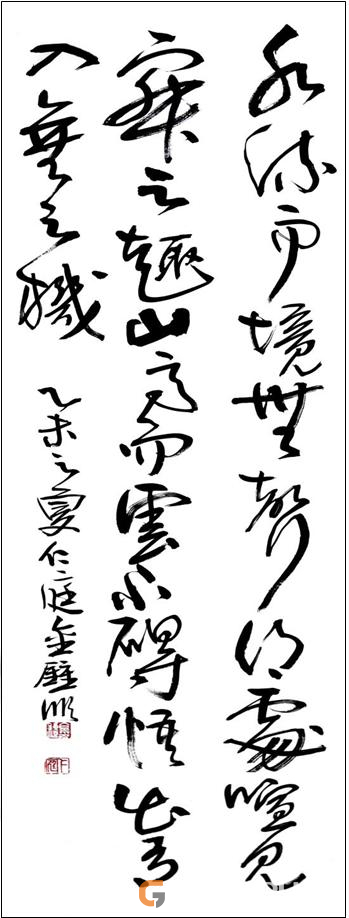 水流而境無聲得處喧見
寂之趣山高而雲不碍悟出有
入無之機
乙未之夏仁庭金